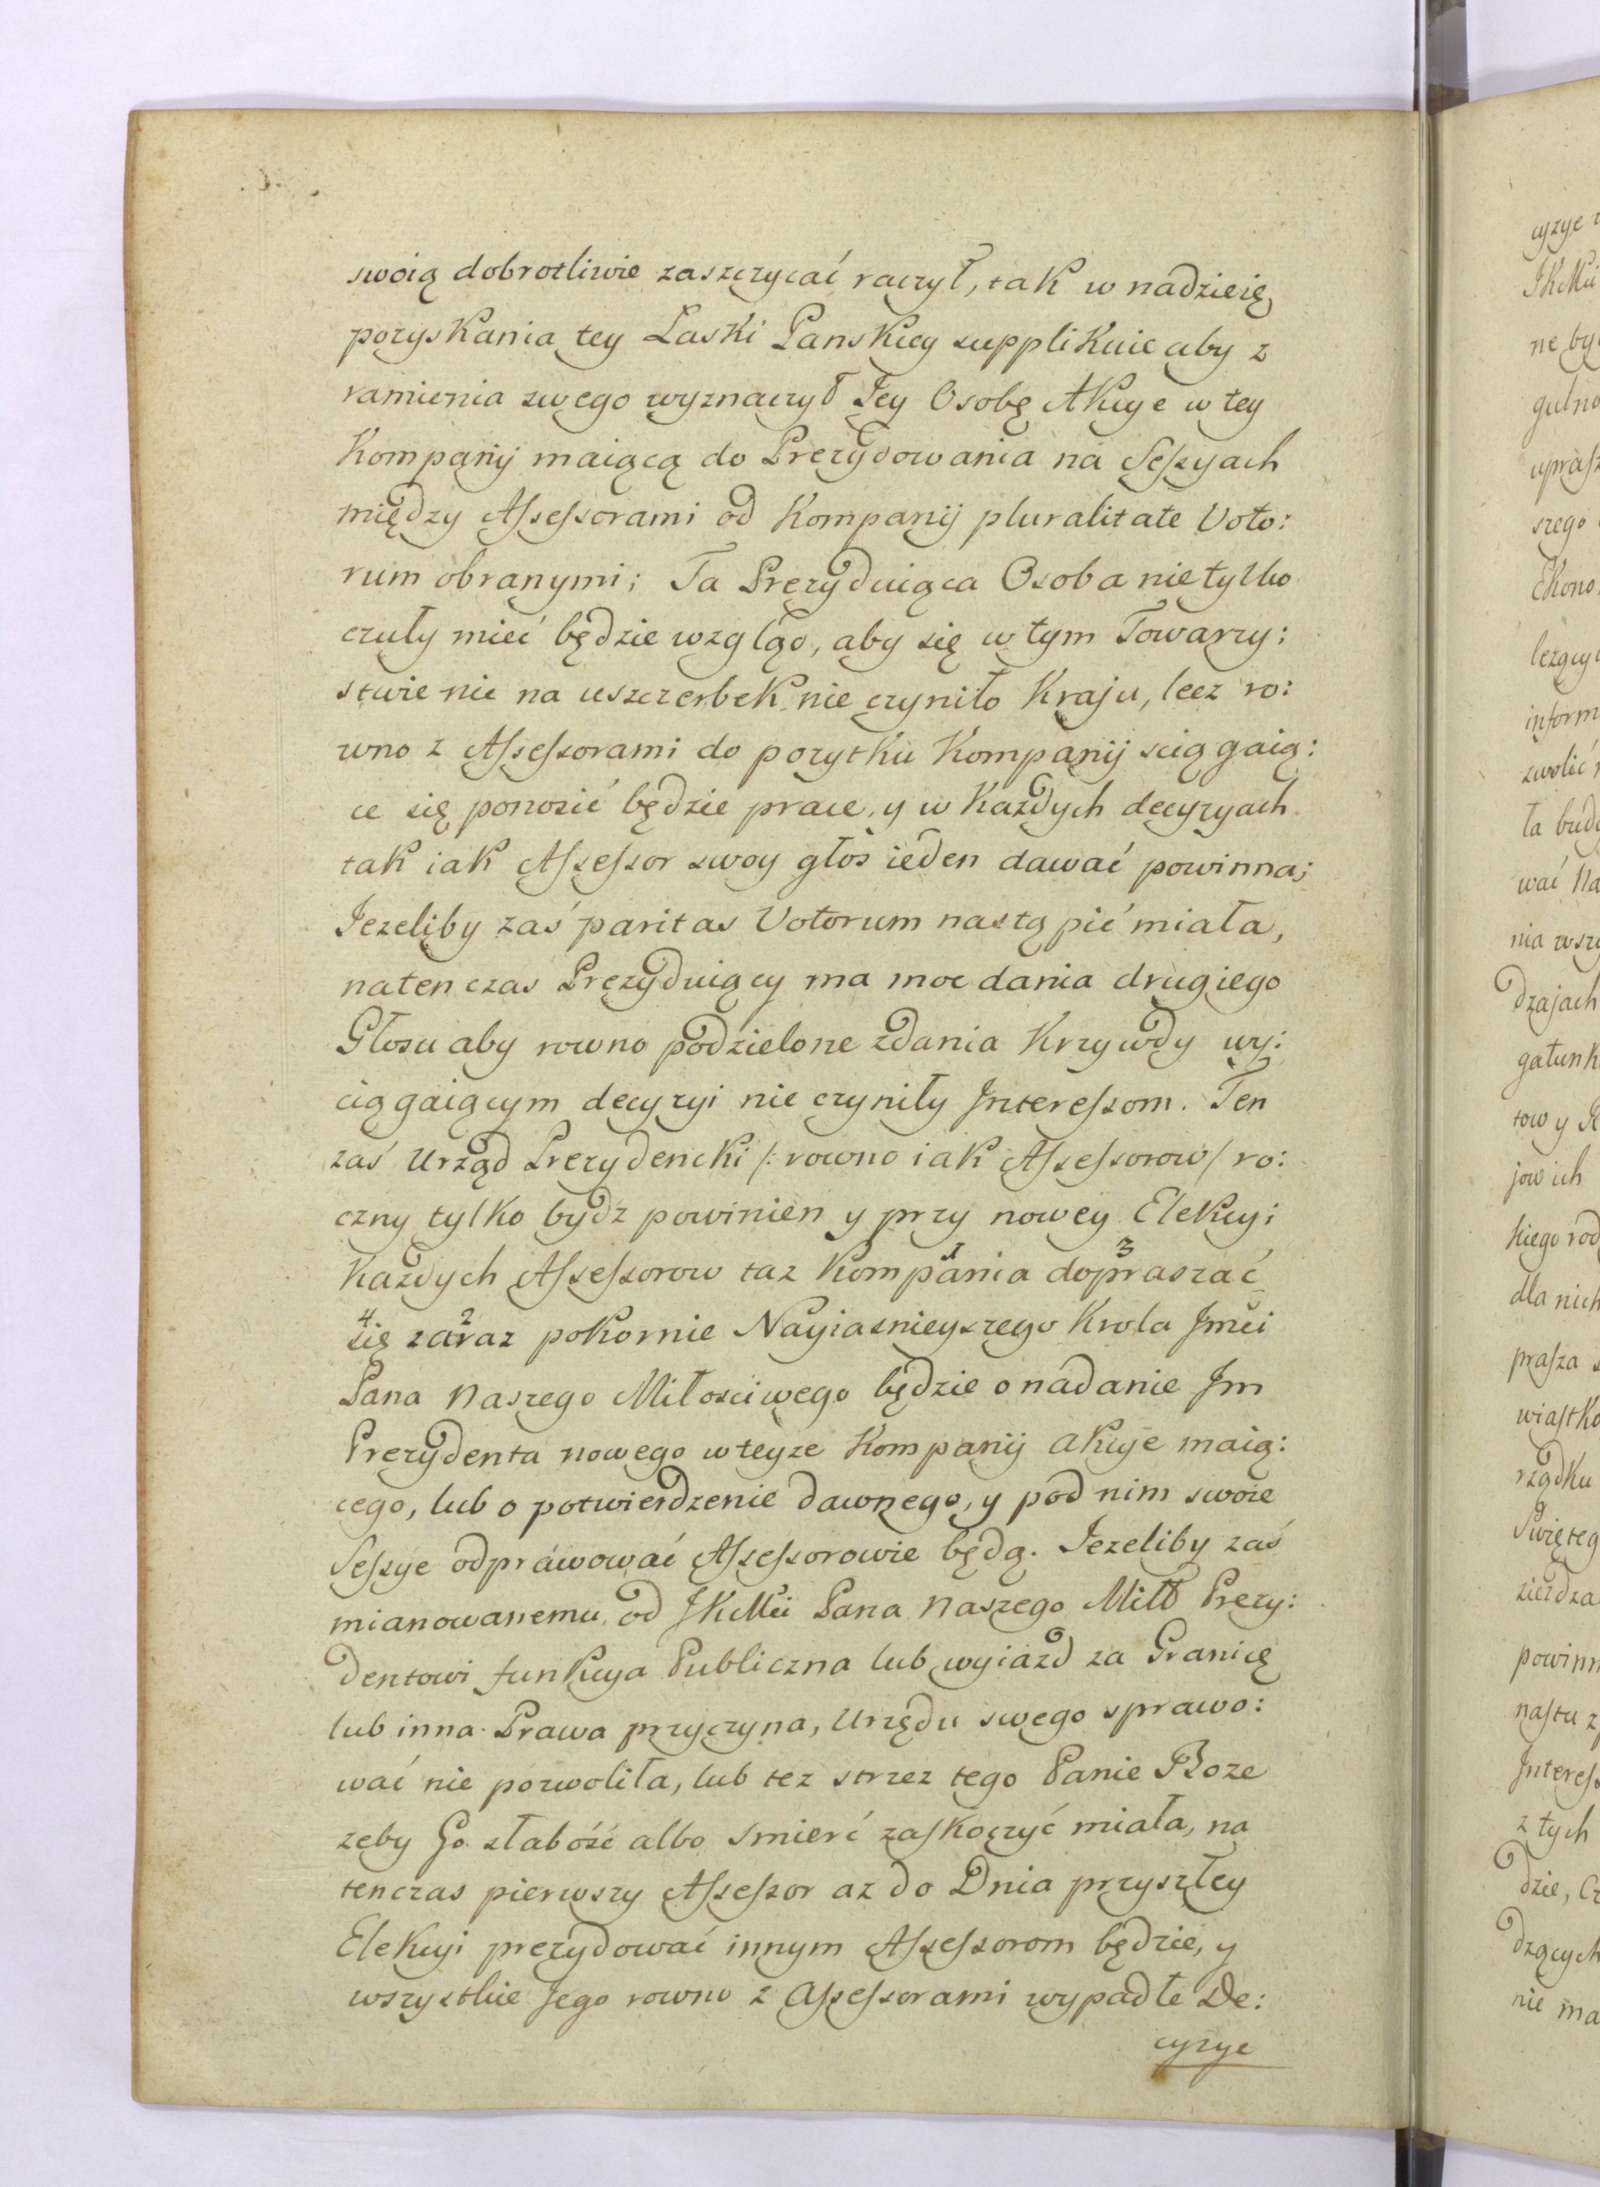 swoią dobrotliwie zaszczycać raczył, tak w nadzieię
pozyskania tey Laski Panskiey supplikuie aby z
ramienia swego wyznaczył Jey Osobę Akcye w tey
Kompanij maiącą do Prezydowania na Sessyach
między Assessorami od Kompanij pluralitate Voto:
rum obranymi; Ta Prezyduiąca Osoba nie tylko
czuły mieć będzie wzgląd, aby się w tym Towarzy:
stwie nic na uszczerbek nie czyniło Kraju, lecz ro:
wno z Assessorami do pozytku Kompanij sciągaią:
ce się ponosić będzie prace, y w Każdych decyzyach
tak iak Assessor swoy głos ieden dawać powinna;
Iezeliby zaś paritas Votorum nastąpić miała,
natenczas Prezyduiący ma moc dania drugiego
Głosu aby rowno podzielone zdania Krzywdy wy:
ciągaiącym decyzyi nie czyniły Interessom. Ten
zaś Urząd Prezydencki /: rowno iak Assessorow/ ro:
czny tylko bydz powinien y przy nowey Elekcyi
1 3
Każdych Assessorow taz Kompania dopraszać
4 2
się zaraz pokornie Nayiasnieyszego Krola Jmci
Pana Naszego Miłosciwego będzie o nadanie Jm
Prezydenta nowego w teyze Kompanij akcye maią:
cego, lub o potwierdzenie dawnego, y pod nim swoie
Sessye odprawować Assessorowie będą. Iezeliby zaś
mianowanemu od JKMci Pana Naszego Miłł Prezy:
dentowi funkcya Publiczna lub wyiazd za Granicę
lub inna Prawa przyczyna, Urzędu swego sprawo:
wać nie pozwoliła, lub tez strzez tego Panie Boze
zeby Go słabość albo smierć zaskoczyć miała, na
tenczas pierwszy Assessor az do Dnia przyszłey
Elekcyi prezydować innym Assessorom będzie, y
wszystkie Jego rowno z Assessorami wypadłe De:
cyzye
cyzye
JKMci
ne by
gulno
uprasz
szego
Ekono
lezący
inform
zwolić
ła bud
wać Na
nia wszy
dzajach
gatunk
tow y R
jow ich
kiego rod
dla nich
prasza
wiastko
rządku
Swięteg
zierdza
powinn
nastu
Interess
z tych
dzie, Cz
dzących
nie ma